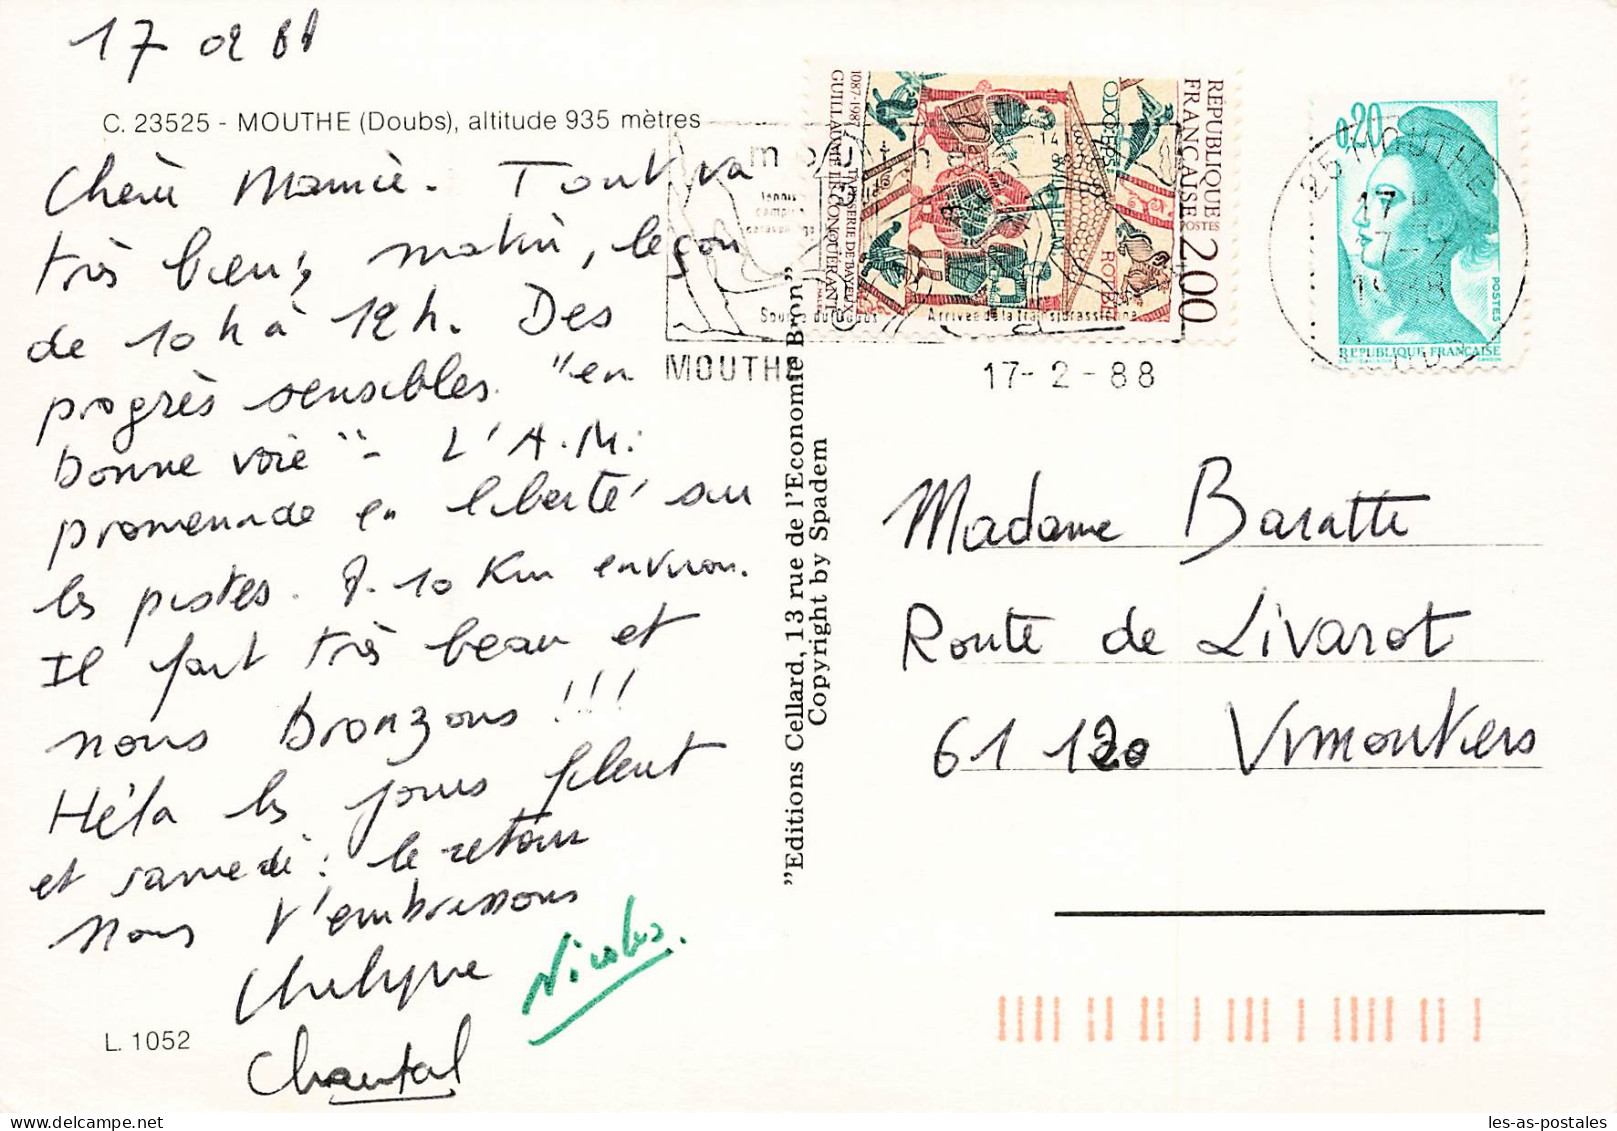 17 02 88
C. 23525 - MOUTHE (Doubs), altitude 935 mètres
Chère Mamie. Tout va
très bien, matin, leçon
de 10 h à 12 h. Des
progrès sensibles. "en
bonne voie" - L'A.M.
promenade en liberté sur
les pistes. 10 Km environ.
Il fait très beau et
nous bronzons !!!
Héla les jours filent
et samedi : le retour
Nous t'embrassons
Nicolas.
Chantal
L. 1052
"Editions Cellard, 13 rue de l'Economie Bron"
Copyright by Spadem
1087-1987
GUILLAUME LE CONQUÉRANT
RÉPUBLIQUE
FRANÇAISE
POSTES
2,00
MOUTHE
17-2-88
Arrivée de la transjurassienne
0,20
POSTES
REPUBLIQUE FRANÇAISE
25 MOUTHE
17 H
17-2
1988
Madame Baratte
Route de Livarot
61 120 Vimoutiers
les-as-postales